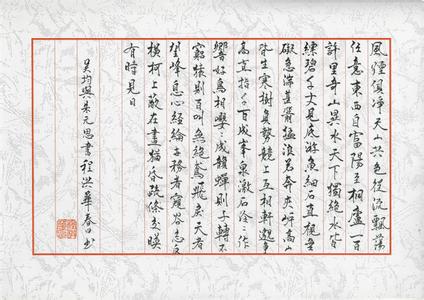 風煙俱净天山共色從流飄蕩
任意東西自富陽至桐廬一百
許里奇山異水天下獨絶水皆
縹碧千丈見底游魚細石直視無
礙急湍甚箭猛浪若奔夾岸高山
皆生寒樹負勢競上互相軒邈爭
高直指千百成峯泉激石泠〻作
響好鳥相嚶〻成韻蟬則千轉不
窮猿則百叫無絶鳶飛戾天者
望峰息心經綸世務者窺谷忘反
横柯上蔽在晝猶昏疏條交暎
有時見日
吴均與朱元思書 程洪華春日书